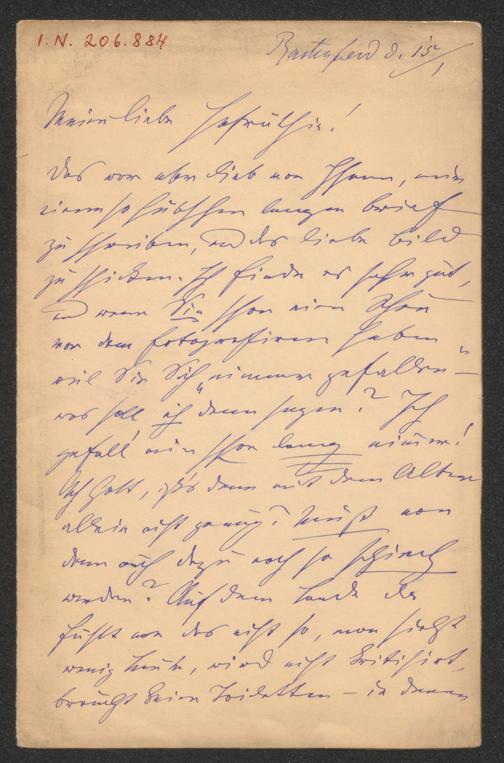 I. N. 206.884
d. 15/1
Meine liebe
Das war aber lieb von Ihnen, mir
einen so hübschen langen Brief
zu schreiben, und das liebe Bild
zu schicken. Ich finde es sehr gut,
und wenn Sie schon eine Scheu
vor dem Fotografiren haben
weil Sie Sich "nimmer gefallen" –
was soll ich denn sagen? Ich
gefall' mir schon lang nimmer!
Ach Gott, ist's denn mit dem Alter
allein nicht genug? Muß man
denn auch dazu noch so schiech
werden? Auf dem Lande da
fühlt man das nicht so, man sieht
wenig Leute, wird nicht kritisirt,
braucht keine Toiletten – in denen